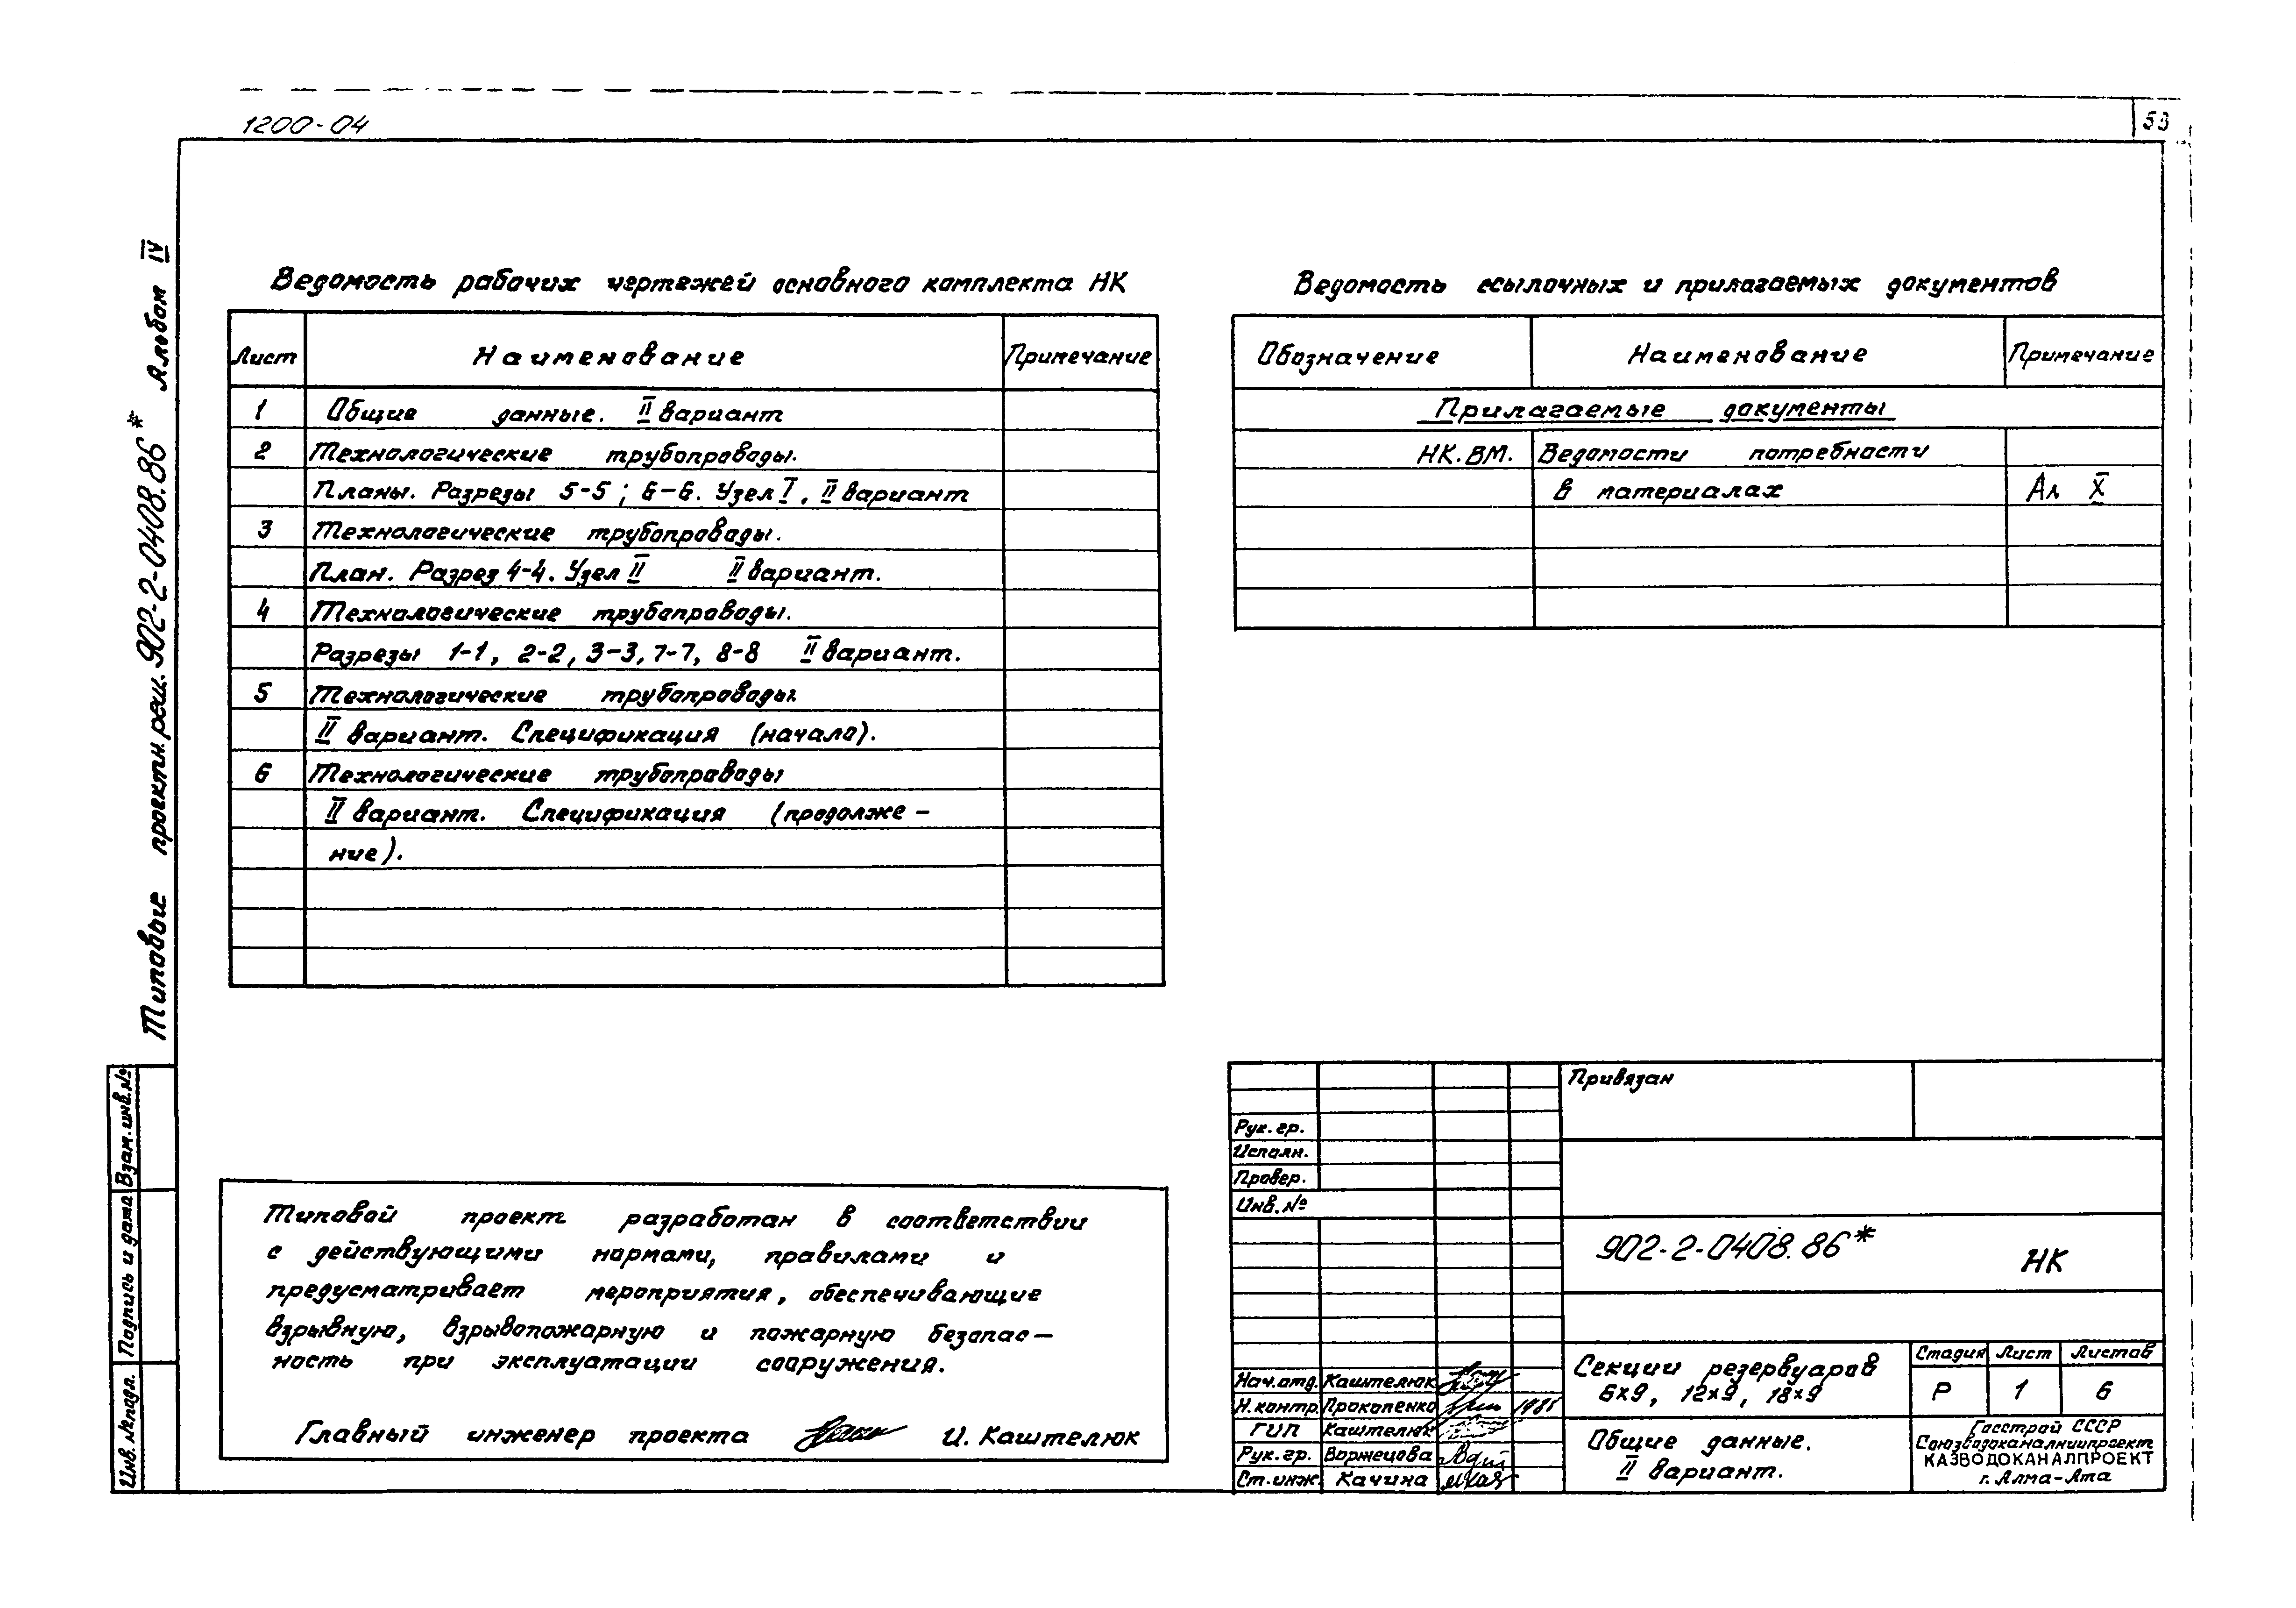 1200-04
53
Типовые проектн. реш. 902-2-0408.86* Альбом IV
Ведомость рабочих чертежей основного комплекта НК
Лист Наименование Примечание
1 Общие данные. II вариант
2 Технологические трубопроводы.
Планы. Разрезы 5-5; 6-6. Узел I, II вариант
3 Технологические трубопроводы.
План. Разрез 4-4. Узел II II вариант.
4 Технологические трубопроводы.
Разрезы 1-1, 2-2, 3-3, 7-7, 8-8 II вариант.
5 Технологические трубопроводы.
II вариант. Спецификация (начало).
6 Технологические трубопроводы
II вариант. Спецификация (продолже-
ние).
Ведомость ссылочных и прилагаемых документов
Обозначение Наименование Примечание
Прилагаемые документы
НК. ВМ. Ведомости потребности
в материалах Ал X
Типовой проект разработан в соответствии
с действующими нормами, правилами и
предусматривает мероприятия, обеспечивающие
взрывную, взрывопожарную и пожарную безопас-
ность при эксплуатации сооружения.
Главный инженер проекта И. Каштелюк
Взам. инв. №
Подпись и дата
Инв. № подл.
Привязан
Рук. гр.
Исполн.
Провер.
Инв. №
902-2-0408.86*
НК
Нач. отд. Каштелюк
Н. контр. Прокопенко
ГИП Каштелюк
Рук. гр. Воржецова
Ст. инж. Качина
Секции резервуаров
6×9, 12×9, 18×9
Стадия Лист Листов
Р 1 6
Общие данные.
II вариант.
Госстрой СССР
Союзводоканалниипроект
КАЗВОДОКАНАЛПРОЕКТ
г. Алма-Ата